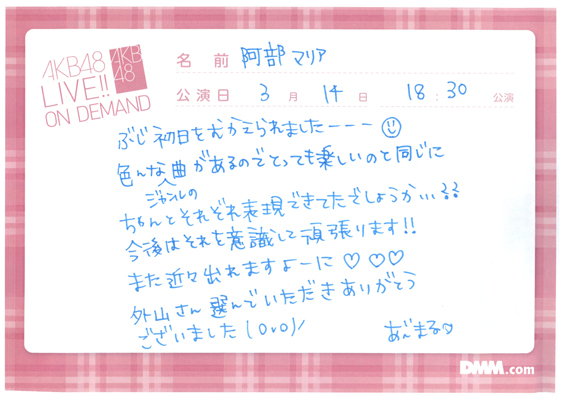 AKB48
LIVE!!
ON DEMAND
AKB
48
名前 阿部マリア
公演日 3月 14日 18:30 公演
ぶじ初日をむかえられましたーーー
色んな曲があるのでとっても楽しいのと同じに
ジャンルの
ちゃんとそれぞれ表現できてたでしょうか…??
今後はそれを意識して頑張ります!!
また近々出れますよーに♡♡♡
外山さん選んでいただきありがとう
ございました(OvO)/
あんまる♡
DMM.com